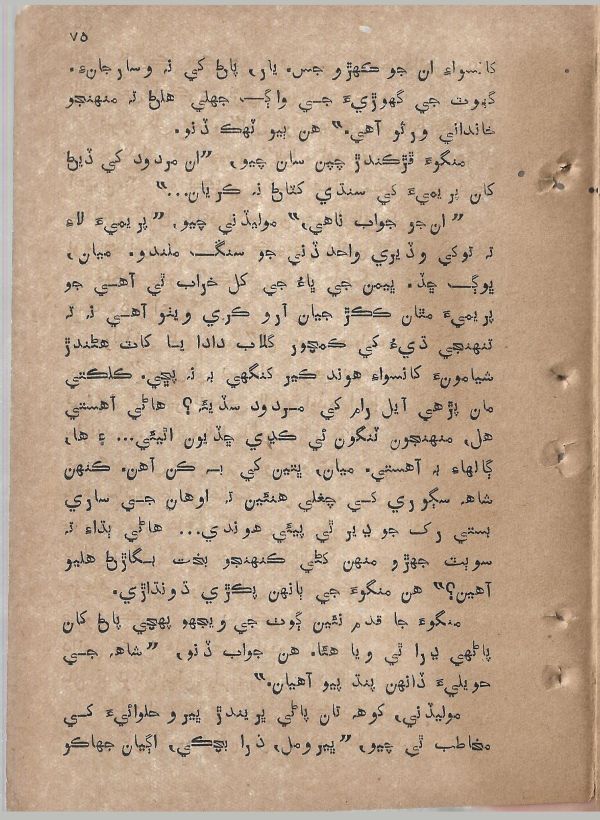 ٧٥
کانسواءِ ان جو ڪهڙو جس. يار، پاڻ کي نہ وسارجانءِ.
ڳوٺ جي گهوڙيءَ جي واڳ جهلي هلڻ تہ منهنجو
خانداني ورثو آهي.“ هن ٻيو ٽهڪ ڏنو.
منگوءَ ڦڙڪندڙ چپن سان چيو، ”ان مردود کي ڏيڻ
کان پريميءَ کي سنڌي کٿان نہ ڪريان...“
”ان جو جواب ناهي،“ موليڏني چيو، ”پريميءَ لاءِ
تہ توکي وڏيري واحد ڏني جو سنگ ملندو. ميان،
ڀوڳ ڇڏ. ڀيمن جي ڀاءُ جي کل خراب ٿي آهي جو
پريميءَ مٿان ڪڪڙ جيان آرو ڪري ويٺو آهي نہ تہ
تنهنجي ڌيءُ کي ڪمچور گلاب دادا يا کاٽ هڻندڙ
شيامونءَ کانسواءِ هوند ڪير کنگهي بہ نہ پڇي. ڪلڪتي
مان پڙهي آيل رام کي مردود سڏيئہ؟ هاڻي آهستي
هل، منهنجون ٽنگون ئي ڪڍي ڇڏيون اٿيئي... ۽ ها،
ڳالهاءِ بہ آهستي. ميان، ڀتين کي بہ ڪن آهن. ڪنهن
شاهہ سڳوري کي چغلي هنئين تہ اوهان جي ساري
بستي رک جو ڍير ٿي پيئي هوندي... هاڻي ٻڌاءِ تہ
سوٻٽ جهڙو منهن کڻي ڪنهنجو بخت بگاڙڻ هليو
آهين؟“ هن منگوءَ جي ٻانهن پڪڙي ڌونڌاڙي.
منگوءَ جا قدم نئين ڳوٺ جي ويجهو پهچي پاڻ کان
پاڻهي ڍرا ٿي ويا هئا. هن جواب ڏنو، ”شاهہ جي
حويليءَ ڏانهن پنڌ پيو آهيان.“
موليڏني، کوهہ تان پاڻي ڀريندڙ ڀيرو حلوائيءَ کي
مخاطب ٿي چيو، ”ڀيرومل، ذرا بچڪي، اڳيان جهاڪو